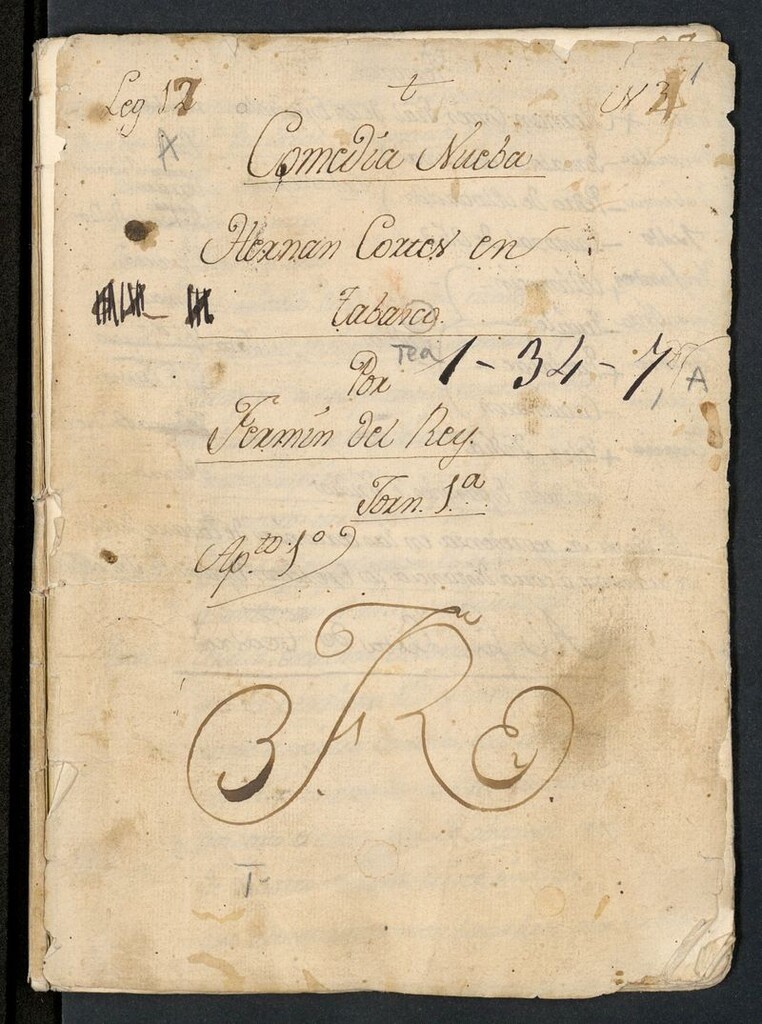 Leg 12
t
N 3
1
A
Comedia Nueba
Hernan Cortes en
Tabasco.
Tea
Por
1-34-7,
A
Fermin del Rey.
Jorn. 1ª
Ap.to 1º
T